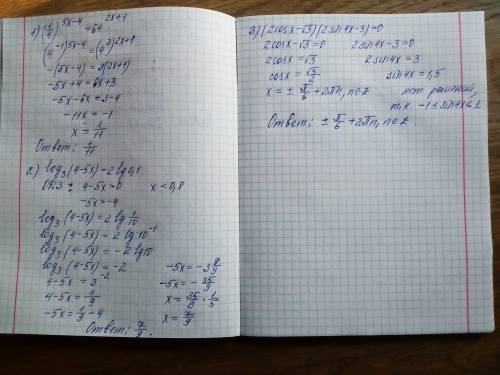 1) (1/4)^(5x-4) = 64^(2x+1)
(4^(-1))^(5x-4) = (4^3)^(2x+1)
-(5x-4) = 3(2x+1)
-5x+4 = 6x+3
-5x-6x = 3-4
-11x = -1
x = 1/11
Ответ: 1/11
2) log₃(4-5x) = 2 lg 0,1
ОДЗ: 4-5x>0 x < 0,8
-5x>-4
log₃(4-5x) = 2 lg 1/10
log₃(4-5x) = 2 lg 10⁻¹
log₃(4-5x) = -2 lg 10
log₃(4-5x) = -2
4-5x = 3⁻²
4-5x = 1/9
-5x = 1/9 - 4
-5x = -3 8/9
-5x = -35/9
x = 35/9 · 1/5
x = 7/9
Ответ: 7/9.
3) (2cosx-√3)(2sin4x-3)=0
2cosx-√3=0 2sin4x-3=0
2cosx=√3 2sin4x=3
cosx=√3/2 sin4x=1,5
x = ± π/6 + 2πn, n∈z нет решений,
т.к. -1≤sin4x≤1
Ответ: ± π/6 + 2πn, n∈z.